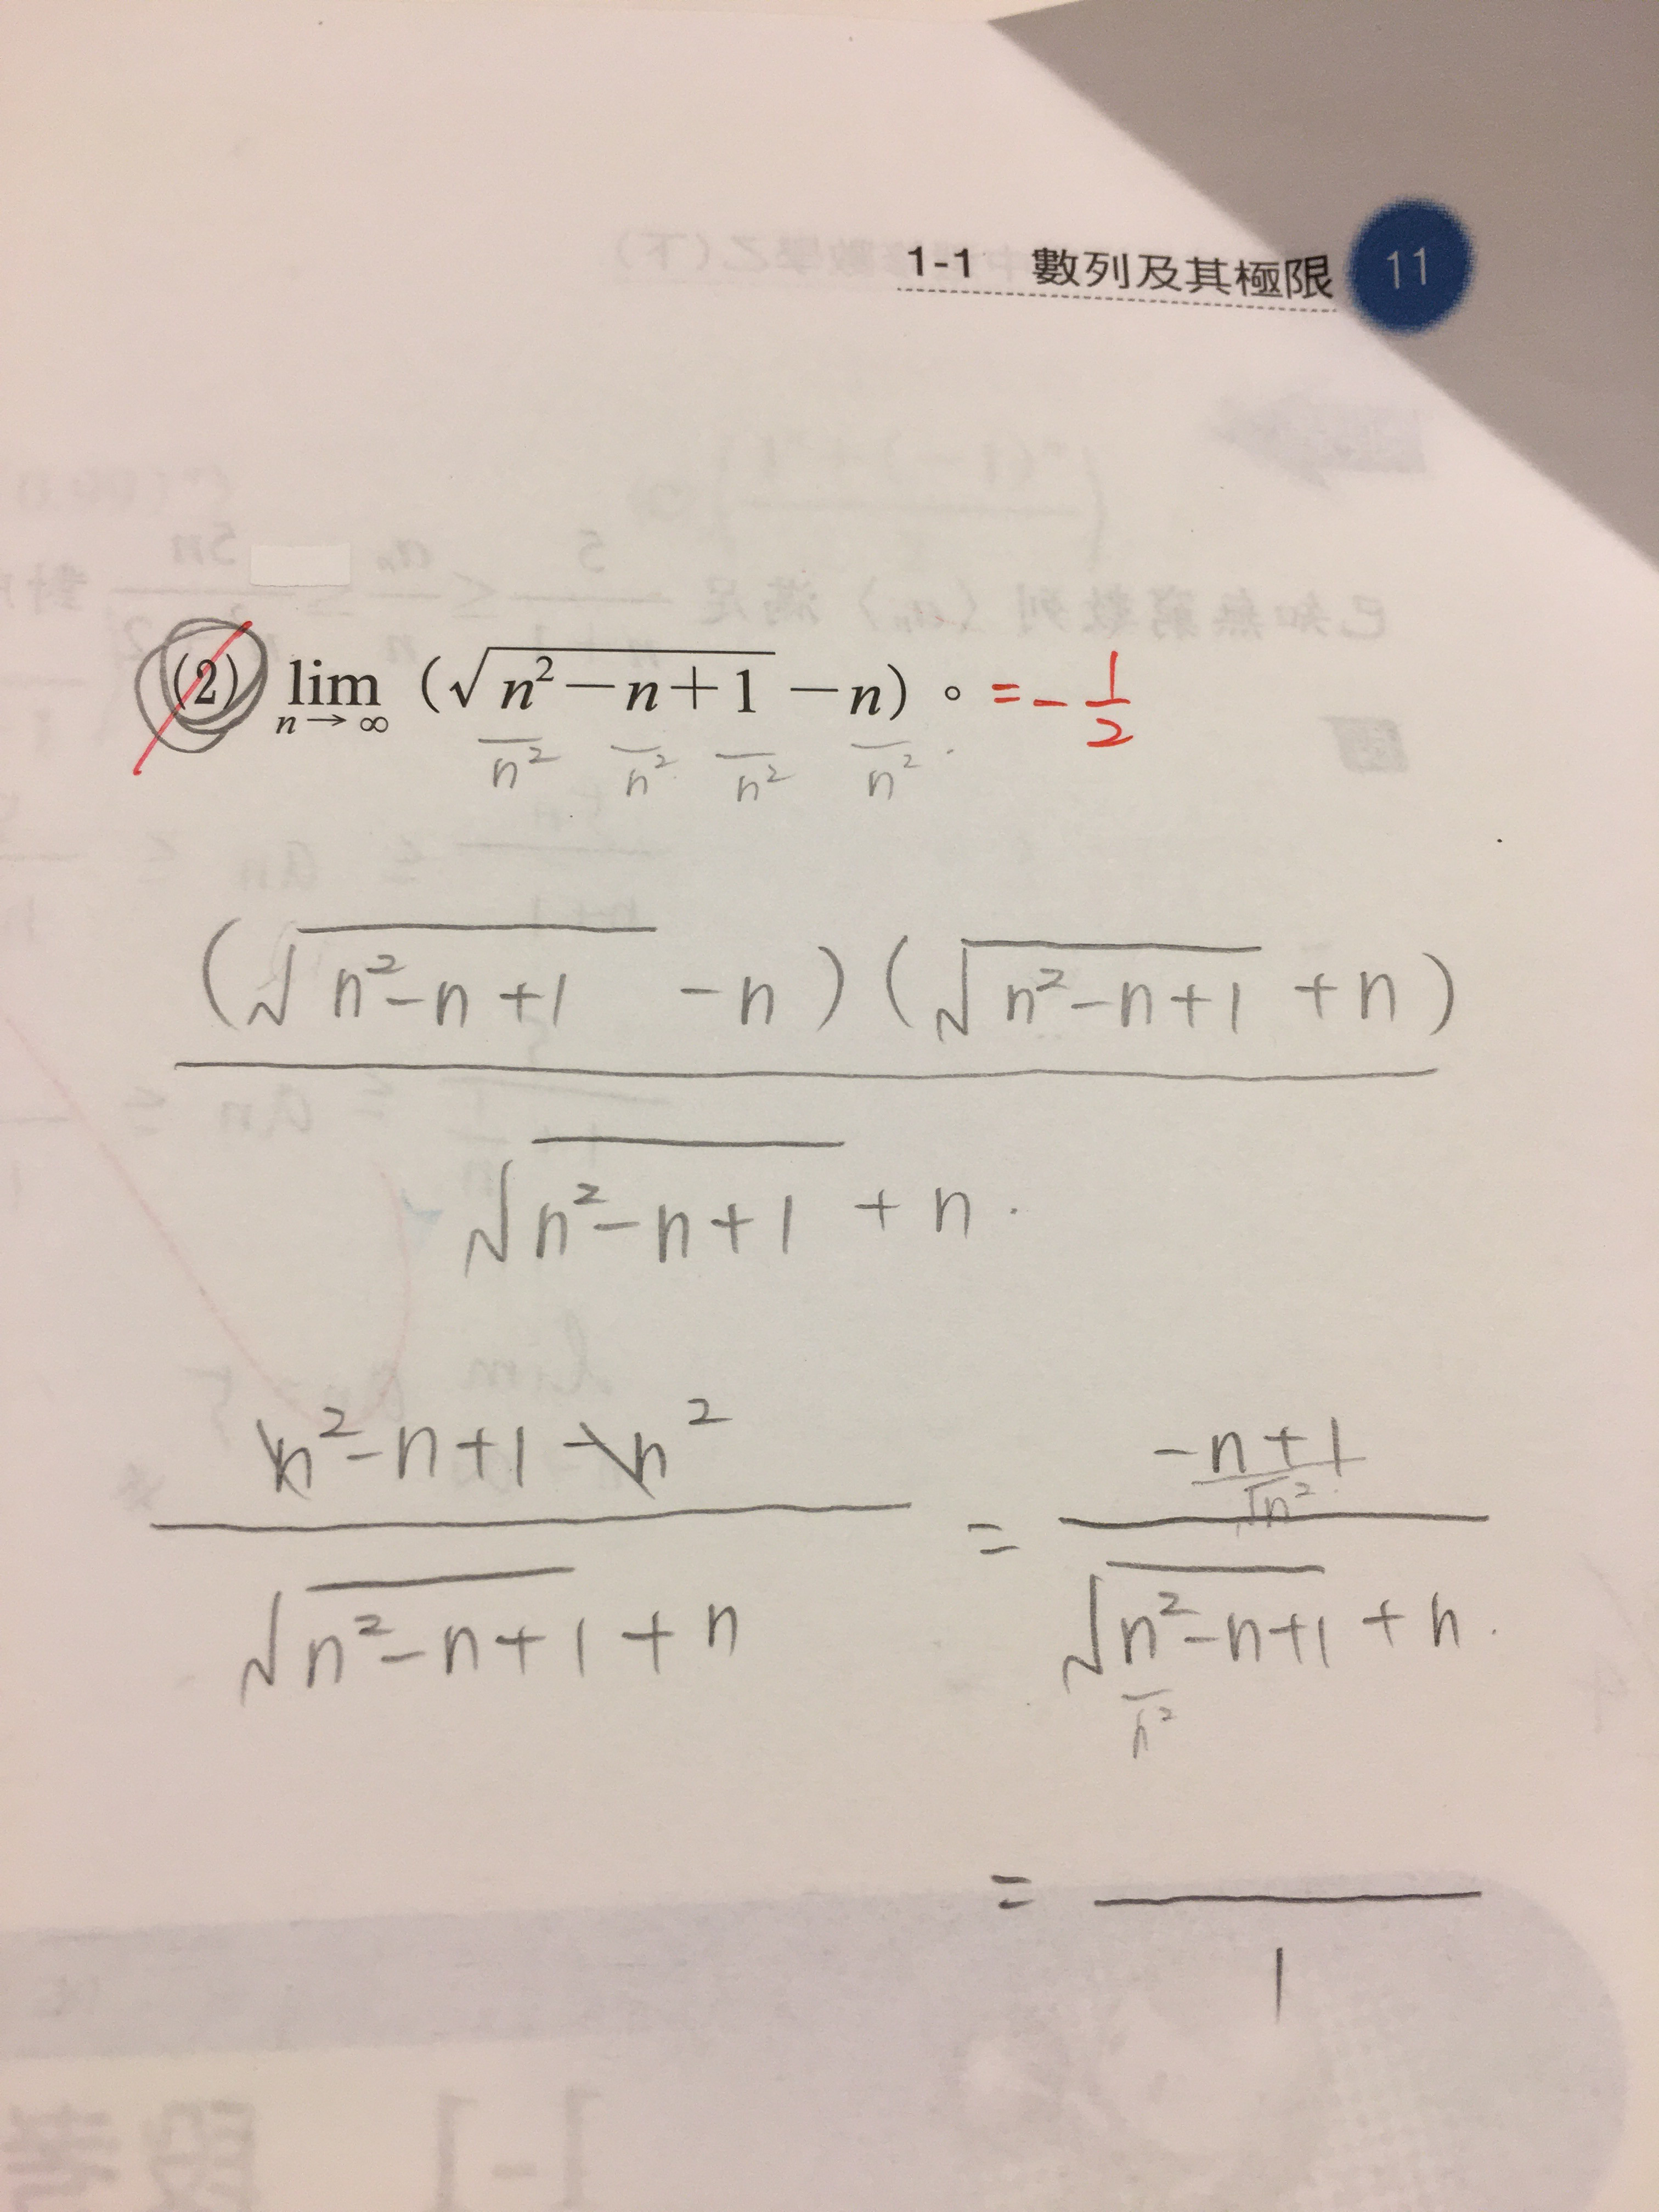 1-1 數列及其極限 11
(2) lim n→∞ (√n²−n+1 −n)。 = - 1/2
n² n² n² n²
(√n²-n+1 -n)(√n²-n+1 +n)
√n²-n+1 +n.
n²-n+1-n² = -n+1
√n²
√n²-n+1+n √n²-n+1+n.
n²
=
1